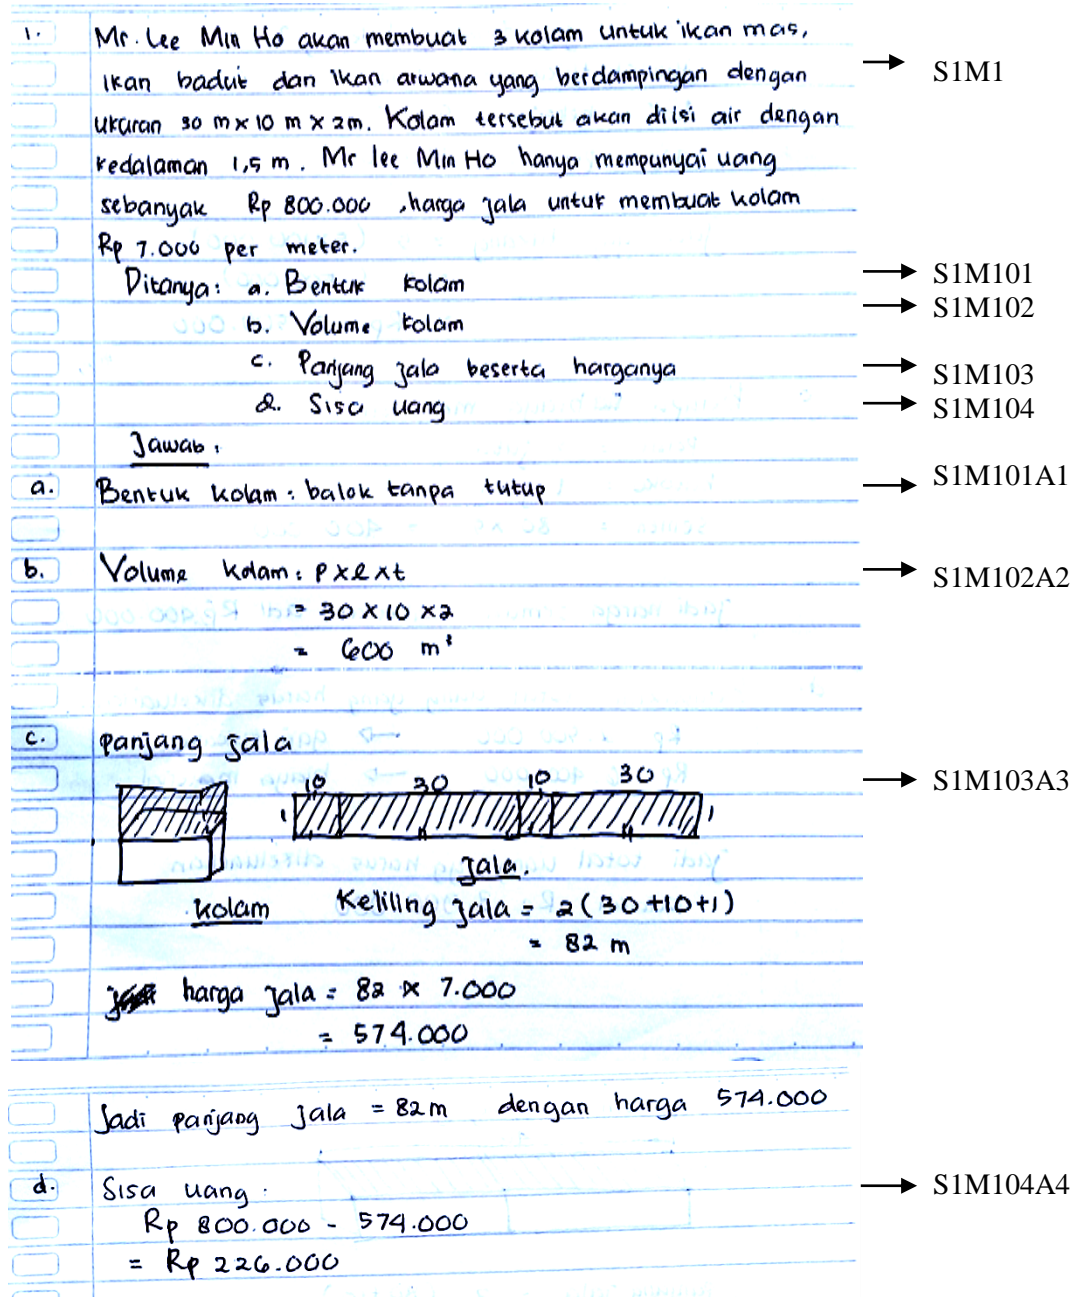 1. Mr. Lee Min Ho akan membuat 3 kolam untuk ikan mas,
ikan badut dan ikan arwana yang berdampingan dengan → S1M1
ukuran 30 m x 10 m x 2m. Kolam tersebut akan diisi air dengan
kedalaman 1,5 m. Mr lee Min Ho hanya mempunyai uang
sebanyak Rp 800.000, harga jala untuk membuat kolam
Rp 7.000 per meter.
Ditanya: a. Bentuk kolam → S1M101
b. Volume kolam → S1M102
c. Panjang jala beserta harganya → S1M103
d. Sisa uang → S1M104
Jawab:
a. Bentuk kolam: balok tanpa tutup → S1M101A1
b. Volume kolam: p x l x t → S1M102A2
= 30 x 10 x 2
= 600 m³
c. panjang jala
10 30 10 30 → S1M103A3
1 1
jala.
kolam Keliling jala = 2(30+10+1)
= 82 m
harga jala = 82 x 7.000
= 574.000
Jadi panjang jala = 82m dengan harga 574.000
d. Sisa uang: → S1M104A4
Rp 800.000 - 574.000
= Rp 226.000